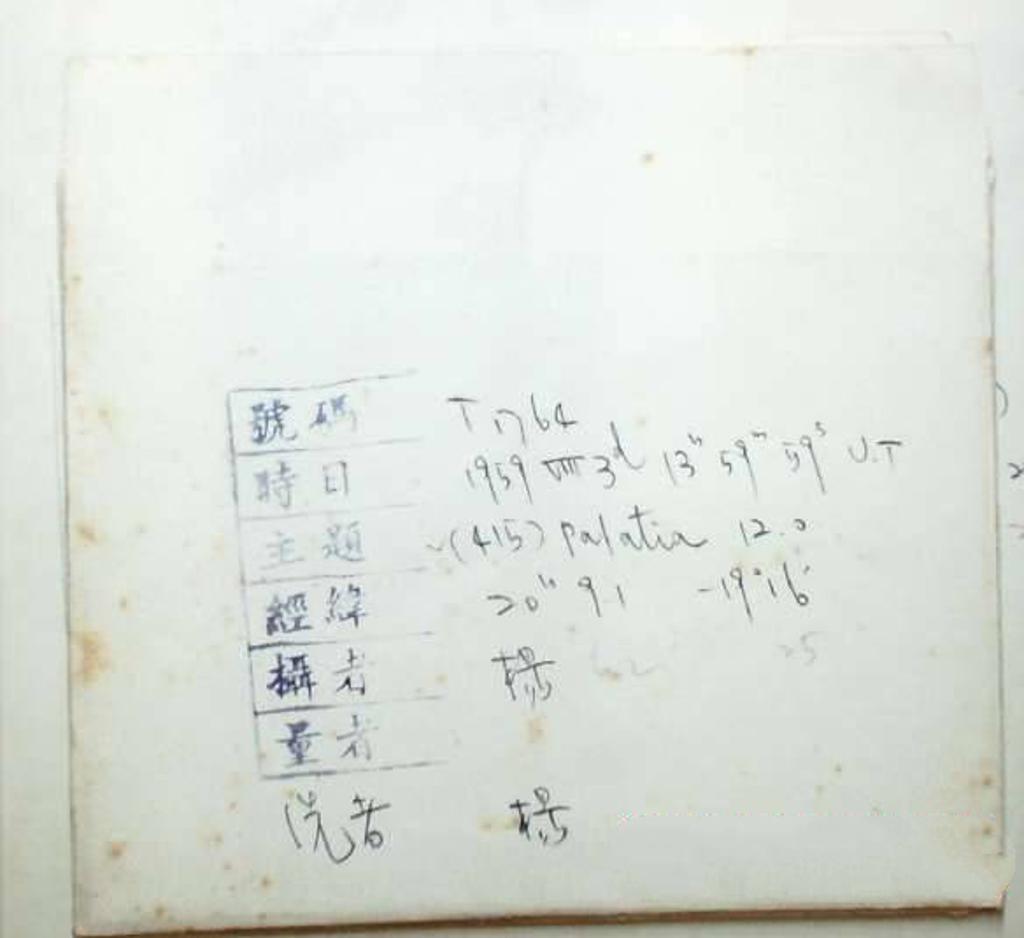 號碼 T 1764
時日 1959 VIII 3d 13h 59m 59s U.T
主題 (415) palatia 12.0
經緯 20h 9.1 -19°16'
攝者 楊
量者
洗者 楊